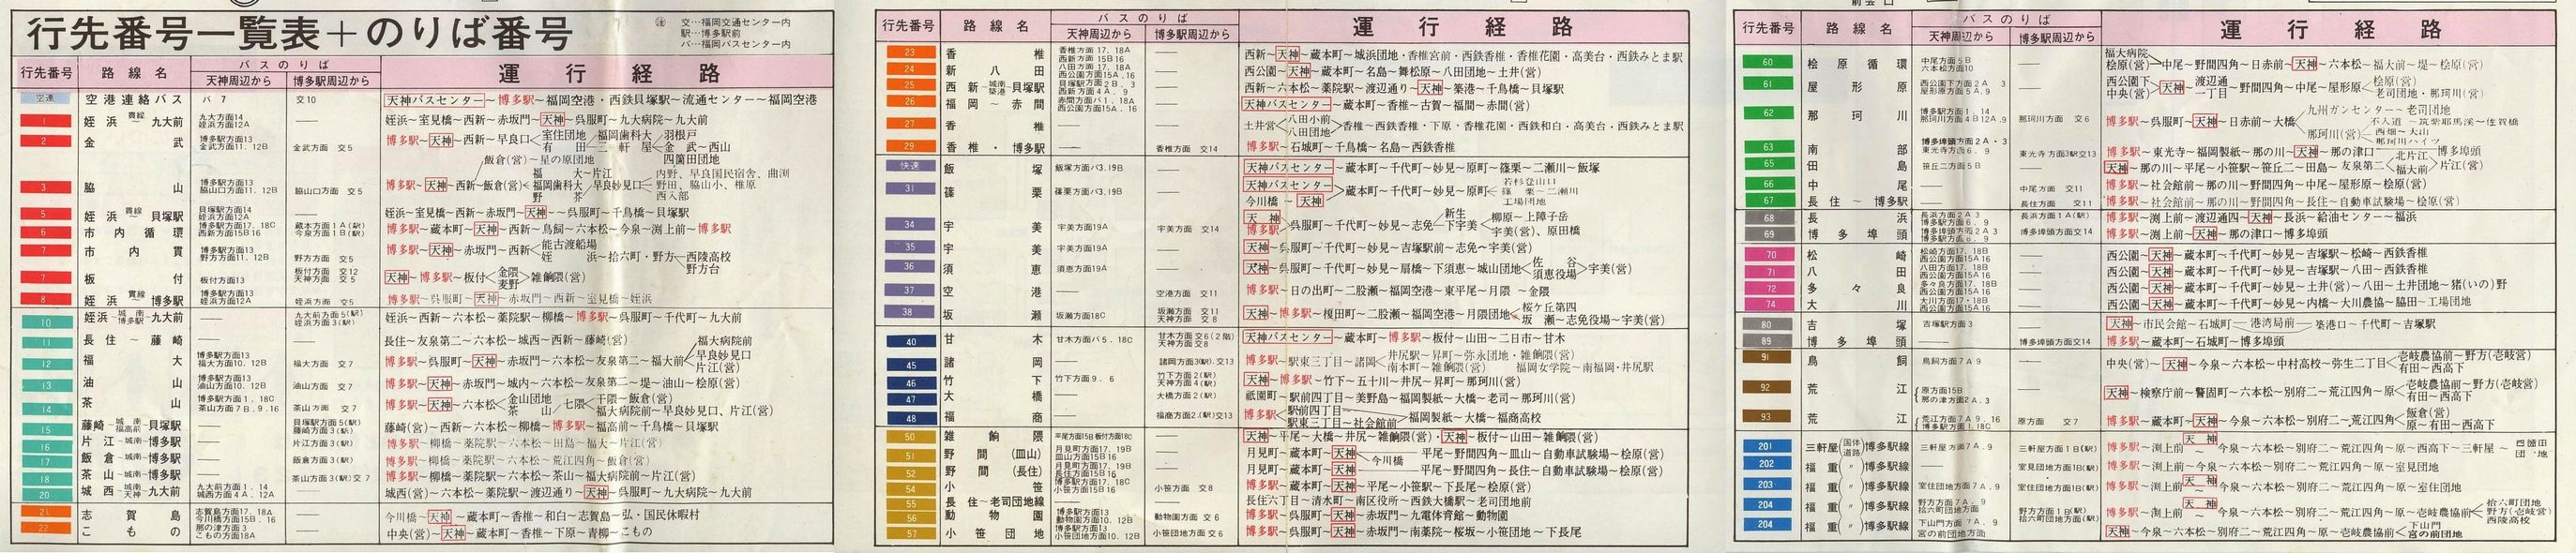 行先番号一覧表＋のりば番号
㊟ 交…福岡交通センター内
駅…博多駅前
バ…福岡バスセンター内
行先番号 路線名 バスのりば 運行経路
天神周辺から 博多駅周辺から
空連 空港連絡バス バ7 交10 天神バスセンター～博多駅～福岡空港・西鉄貝塚駅～流通センター～福岡空港
1 姪浜～貫線～九大前 九大方面14 姪浜方面12A ── 姪浜～室見橋～西新～赤坂門～天神～呉服町～九大病院～九大前
2 金武 博多駅方面13 金武方面11.12B 金武方面 交5 博多駅～天神～西新～早良口 室住団地 福岡歯科大 羽根戸
有田─三軒屋 金武～西山
飯倉(営)～星の原団地 四箇田団地
3 脇山 博多駅方面13 脇山口方面11.12B 脇山口方面 交5 博多駅～天神～西新～飯倉(営) 福大～片江 福岡歯科大 野芥 早良妙見口 内野、早良国民宿舎、曲渕
野田、脇山小、椎原
西入部
5 姪浜～貫線～貝塚駅 貝塚駅方面14 姪浜方面12A ── 姪浜～室見橋～西新～赤坂門～天神～呉服町～千鳥橋～貝塚駅
6 市内循環 博多駅方面17.18C 西新方面15B16 蔵本方面1A(駅) 今泉方面1B(駅) 博多駅～蔵本町～天神～西新～鳥飼～六本松～今泉～渕上前～博多駅
7 市内貫 博多駅方面13 野方方面11.12B 野方方面 交5 博多駅～天神～赤坂門～西新 能古渡船場
姪浜～拾六町・野方 西陵高校
野方台
7 板付 板付方面13 板付方面 交12 天神方面 交5 天神～博多駅～板付 金隈 麦野 雑餉隈(営)
8 姪浜～貫線～博多駅 博多駅方面13 姪浜方面12A 姪浜方面 交5 博多駅～呉服町～天神～赤坂門～西新～室見橋～姪浜
10 姪浜～城南 博多駅～九大前 ── 九大前方面5(駅) 姪浜方面3(駅) 姪浜～西新～六本松～薬院駅～柳橋～博多駅～呉服町～千代町～九大前
11 長住～藤崎 ── ── 長住～友泉第二～六本松～城西～西新～藤崎(営)
12 福大 博多駅方面13 福大方面10.12B 福大方面 交7 博多駅～呉服町～天神～赤坂門～六本松～友泉第二～福大前 福大病院前
早良妙見口
片江(営)
13 油山 博多駅方面13 油山方面10.12B 油山方面 交7 博多駅～天神～赤坂門～城内～六本松～友泉第二～堤～油山～桧原(営)
14 茶山 博多駅方面1.18C 茶山方面7B.9.16 茶山方面 交7 博多駅～天神～六本松 金山団地 茶山 七隈 干隈～飯倉(営)
福大病院前～早良妙見口、片江(営)
15 藤崎～城南 福高前～貝塚駅 ── 貝塚駅方面5(駅) 藤崎方面3(駅) 藤崎(営)～西新～六本松～柳橋～博多駅～福高前～千鳥橋～貝塚駅
16 片江～城南～博多駅 ── 片江方面3(駅) 博多駅～柳橋～薬院駅～六本松～田島～福大～片江(営)
17 飯倉～城南～博多駅 ── 飯倉方面3(駅) 博多駅～柳橋～薬院駅～六本松～荒江四角～飯倉(営)
18 茶山～城南～博多駅 ── 茶山方面3(駅)交7 博多駅～柳橋～薬院駅～六本松～茶山～福大病院前～片江(営)
20 城西～城南 天神～九大前 九大前方面1.14 城西方面4A.12A ── 城西(営)～六本松～薬院駅～渡辺通り～天神～呉服町～九大病院～九大前
21 志賀島 志賀島方面17.18A 今川橋方面15B.16 ── 今川橋～天神～蔵本町～香椎～和白～志賀島～弘・国民休暇村
22 こもの 那の津方面3 こもの方面18A ── 中央(営)～天神～蔵本町～香椎～下原～青柳～こもの
行先番号 路線名 バスのりば 運行経路
天神周辺から 博多駅周辺から
23 香椎 香椎方面17.18A 西新方面15B16 ── 西新～天神～蔵本町～城浜団地・香椎宮前・西鉄香椎・香椎花園・高美台・西鉄みとま駅
24 新八田 八田方面17.18A 西公園方面15A.16 ── 西公園～天神～蔵本町～名島～舞松原～八田団地～土井(営)
25 西新～城南 築港～貝塚駅 貝塚方面2B.3 西新方面4A.9 ── 西新～六本松～薬院駅～渡辺通り～天神～築港～千鳥橋～貝塚駅
26 福岡～赤間 赤間方面バ1.18A 西公園方面15A.16 ── 天神バスセンター～蔵本町～香椎～古賀～福間～赤間(営)
27 香椎 ── ── 土井営 八田小前 八田団地 香椎～西鉄香椎・下原・香椎花園・西鉄和白・高美台・西鉄みとま駅
29 香椎・博多駅 ── 香椎方面 交14 博多駅～石城町～千鳥橋～名島～西鉄香椎
快速 飯塚 飯塚方面バ3.19B ── 天神バスセンター～蔵本町～千代町～妙見～原町～篠栗～二瀬川～飯塚
31 篠栗 篠栗方面バ3.19B ── 天神バスセンター 今川橋～天神 蔵本町～千代町～妙見～原町 若杉登山口
篠栗～二瀬川
工場団地
34 宇美 宇美方面19A 宇美方面 交14 天神 博多駅 呉服町～千代町～妙見～志免 新生 下宇美 柳原～上障子岳
宇美(営)、原田橋
35 宇美 宇美方面19A ── 天神～呉服町～千代町～妙見～吉塚駅前～志免～宇美(営)
36 須恵 須恵方面19A ── 天神～呉服町～千代町～妙見～扇橋～下須恵～城山団地 佐谷 須恵役場 宇美(営)
37 空港 ── 空港方面 交11 博多駅～日の出町～二股瀬～福岡空港～東平尾～月隈～金隈
38 坂瀬 坂瀬方面18C 坂瀬方面 交11 天神方面 交8 天神～博多駅～榎田町～二股瀬～福岡空港～月隈団地 桜ケ丘第四
坂瀬～志免役場～宇美(営)
40 甘木 甘木方面バ5.18C 甘木方面交6(2階) 天神方面交8 天神バスセンター～蔵本町～博多駅～板付～山田～二日市～甘木
45 諸岡 ── 諸岡方面3(駅).交13 博多駅～駅東三丁目～諸岡 井尻駅～昇町～弥永団地・雑餉隈(営)
南本町～雑餉隈(営) 福岡女学院～南福岡・井尻駅
46 竹下 竹下方面9.6 竹下方面2(駅) 天神方面4(駅) 天神～博多駅～竹下～五十川～井尻～昇町～那珂川(営)
47 大橋 ── 大橋方面2(駅) 祇園町～博多駅～駅前四丁目～美野島～福岡製紙～大橋～老司～那珂川(営)
48 福商 ── 福商方面2.(駅)交13 博多駅 駅前四丁目 駅東三丁目～社会館前 福岡製紙～大橋～福商高校
50 雑餉隈 平尾方面15B 板付方面18C ── 天神～平尾～大橋～井尻～雑餉隈(営)・天神～板付～山田～雑餉隈(営)
51 野間(皿山) 月見町方面17.19B 皿山方面15B16 ── 月見町～蔵本町～天神 今川橋 平尾～野間四角～皿山～自動車試験場～桧原(営)
52 野間(長住) 月見町方面17.19B 長住方面15B16 ── 月見町～蔵本町～天神 平尾～野間四角～長住～自動車試験場～桧原(営)
54 小笹 博多駅方面17.18C 小笹方面15B16 小笹方面 交8 博多駅～蔵本町～天神～平尾～小笹駅～下長尾～桧原(営)
55 長住～老司団地線 ── ── 長住六丁目～清水町～南区役所～西鉄大橋駅～老司団地前
56 動物園 博多駅方面13 動物園方面10.12B 動物園方面 交6 博多駅～呉服町～天神～赤坂門～九電体育館～動物園
57 小笹団地 博多駅方面13 小笹団地方面10.12B 小笹団地方面 交6 博多駅～呉服町～天神～赤坂門～南薬院～桜坂～小笹団地～下長尾
行先番号 路線名 バスのりば 運行経路
天神周辺から 博多駅周辺から
60 桧原循環 中尾方面5B 六本松方面10 ── 福大病院 桧原(営) 中尾～野間四角～日赤前～天神～六本松～福大前～堤～桧原(営)
61 屋形原 西公園下方面2A.3 屋形原方面5A.9 ── 西公園下 中央(営) 天神 渡辺通一丁目～野間四角～中尾～屋形原 桧原(営)
老司団地・那珂川(営)
62 那珂川 博多駅方面1.14 那珂川方面4B12A.9 那珂川方面 交6 博多駅～呉服町～天神～日赤前～大橋 九州ガンセンター～老司団地
不入道～筑紫耶馬渓～佐賀橋
那珂川(営) 西畑～大山
那珂川ハイツ
63 南部 博多埠頭方面2A・3 東光寺方面6.9 東光寺方面3駅交13 博多駅～東光寺～福岡製紙～那の川～天神～那の津口～博多埠頭
65 田島 笹丘二方面5B ── 天神～那の川～平尾～小笹駅～笹丘二～田島～友泉第二 北片江 福大前 片江(営)
66 中尾 ── 中尾方面 交11 博多駅～社会館前～那の川～野間四角～中尾～屋形原～桧原(営)
67 長住～博多駅 ── 長住方面 交11 博多駅～社会館前～那の川～野間四角～長住～自動車試験場～桧原(営)
68 長浜 長浜方面2A3 博多駅方面6.9 長浜方面1A(駅) 博多駅～渕上前～渡辺通四～天神～長浜～給油センター～福浜
69 博多埠頭 博多埠頭方面2A3 博多駅方面6.9 博多埠頭方面交14 博多駅～渕上前～天神～那の津口～博多埠頭
70 松崎 松崎方面17.18B 西公園方面15A16 ── 西公園～天神～蔵本町～千代町～妙見～吉塚駅～松崎～西鉄香椎
71 八田 八田方面17.18B 西公園方面15A16 ── 西公園～天神～蔵本町～千代町～妙見～吉塚駅～八田～西鉄香椎
72 多々良 多々良方面17.18B 西公園方面15A16 ── 西公園～天神～蔵本町～千代町～妙見～土井(営)～八田～土井団地～猪(いの)野
74 大川 大川方面17・18B 西公園方面15A16 ── 西公園～天神～蔵本町～千代町～妙見～内橋～大川農協～脇田～工場団地
80 吉塚 吉塚駅方面3 ── 天神～市民会館～石城町─港湾局前─築港口～千代町～吉塚駅
89 博多埠頭 ── 博多埠頭方面交14 博多駅～石城町～博多埠頭
91 鳥飼 鳥飼方面7A9 ── 中央(営)～天神～今泉～六本松～中村高校～弥生二丁目 壱岐農協前～野方(壱岐営)
有田～西高下
92 荒江 原方面15B 那の津方面2A.3 ── 天神～検察庁前～警固町～六本松～別府二～荒江四角～原 壱岐農協前～野方(壱岐営)
有田～西高下
93 荒江 荒江方面7A9.16 博多駅方面1.18C 原方面 交7 博多駅～蔵本町～天神～今泉～六本松～別府二～荒江四角 飯倉(営)
原～有田～西高下
201 三軒屋(国体道路)博多駅線 三軒屋方面7A.9 三軒屋方面1B(駅) 博多駅～渕上前～天神～今泉～六本松～別府二～荒江四角～原～西高下～三軒屋～四箇田団地
202 福重(〃)博多駅線 ── 室見団地方面1B(駅) 博多駅～渕上前～今泉～六本松～別府二～荒江四角～原～室見団地
203 福重(〃)博多駅線 室住団地方面7A.9 室住団地方面1B(駅) 博多駅～渕上前～天神～今泉～六本松～別府二～荒江四角～原～室住団地
204 福重(〃)博多駅線 野方方面7A.9 拾六町団地方面 野方方面1B(駅) 拾六町団地方面(駅) 博多駅～渕上前～天神～今泉～六本松～別府二～荒江四角～原～壱岐農協前 拾六町団地
野方(壱岐営)
西陵高校
204 福重(〃)博多駅線 下山門方面7A.9 宮の前団地方面 ── 天神～今泉～六本松～別府二～荒江四角～原～壱岐農協前 下山門
宮の前団地